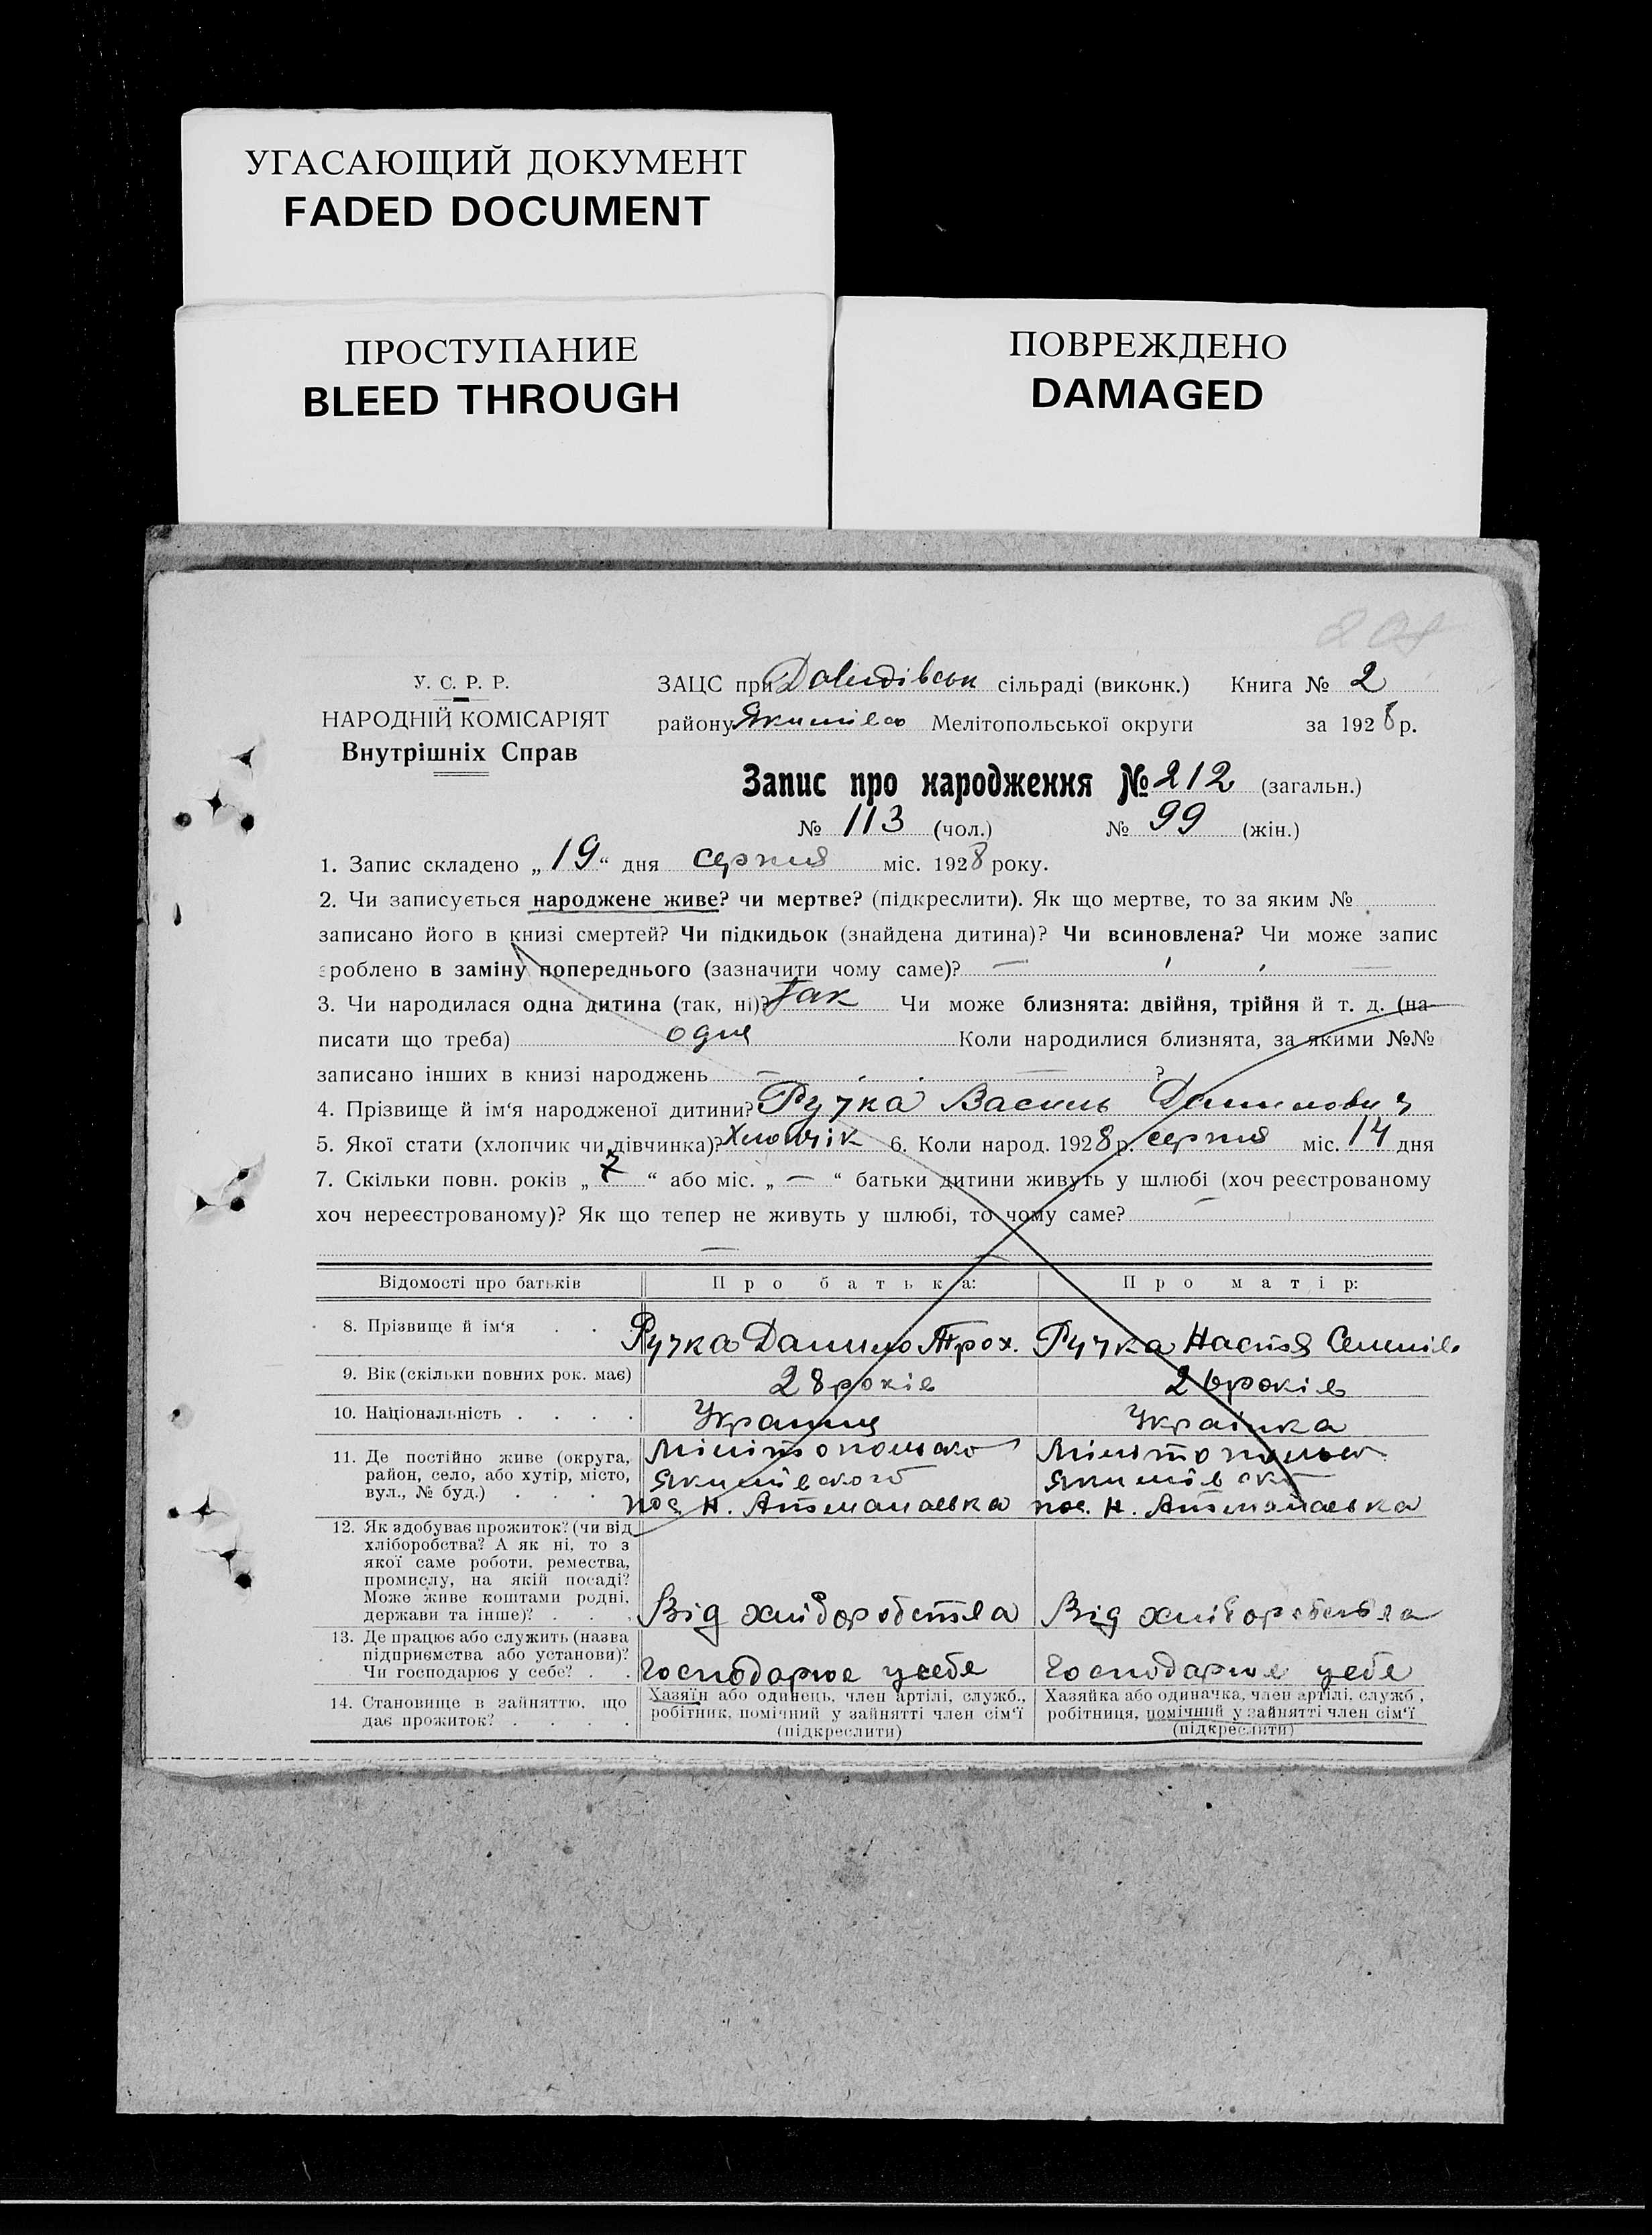 УГАСАЮЩИЙ ДОКУМЕНТ
FADED DOCUMENT
ПРОСТУПАНИЕ
BLEED THROUGH
ПОВРЕЖДЕНО
DAMAGED
У. С. Р. Р.
НАРОДНІЙ КОМІСАРІЯТ
Внутрішніх Справ
ЗАЦС при Давидівськ сільраді (виконк.) Книга № 2
району Якимівсь Мелітопольської округи за 1928 р.
Запис про народження № 212 (загальн.)
№ 113 (чол.) № 99 (жін.)
1. Запис складено „19“ дня серпня міс. 1928 року.
2. Чи записується народжене живе? чи мертве? (підкреслити). Як що мертве, то за яким №
записано його в книзі смертей? Чи підкидьок (знайдена дитина)? Чи всиновлена? Чи може запис
зроблено в заміну попереднього (зазначити чому саме)? —
3. Чи народилася одна дитина (так, ні)? Так Чи може близнята: двійня, трійня й т. д. (на-
писати що треба) одне Коли народилися близнята, за якими №№
записано інших в книзі народжень — ?
4. Прізвище й ім‘я народженої дитини? Ручка Василь Данилович
5. Якої статі (хлопчик чи дівчинка)? Хлопчік 6. Коли народ. 1928 р. серпня міс. 14 дня
7. Скільки повн. років „7“ або міс. „—“ батьки дитини живуть у шлюбі (хоч реєстрованому
хоч нереєстрованому)? Як що тепер не живуть у шлюбі, то чому саме? —
Відомості про батьків Про батька: Про матір:
8. Прізвище й ім‘я Ручка Данило Трох. Ручка Настя Семенів.
9. Вік (скільки повних рок. має) 28 років 26 років
10. Національність Украінец Украінка
11. Де постійно живе (округа, район, село, або хутір, місто, вул., № буд.)
Якимівского
пос. Н. Атманаевка пос. Н. Атманаевка
12. Як здобуває прожиток? (чи від
хліборобства? А як ні, то з
якої саме роботи, ремества,
промислу, на якій посаді?
Може живе коштами родні,
держави та інше)? Від хліборобства Від хліборобства
13. Де працює або служить (назва
підприємства або установи)?
Чи господарює у себе? Господарює усебе Господарює усебе
14. Становище в зайняттю, що
дає прожиток?
Хазяїн або одинець, член артілі, служб.,
робітник, помічний у зайнятті член сім‘ї
(підкреслити)
Хазяйка або одиначка, член артілі, служб.,
робітниця, помічний у зайнятті член сім‘ї
(підкреслити)